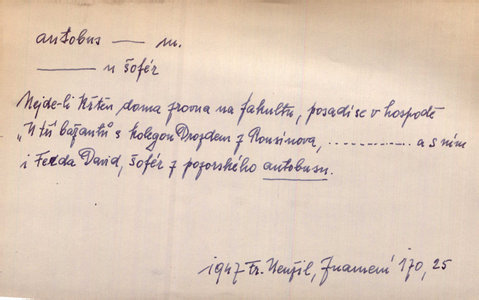 autobus — m.
— u šofér
Nejde-li Kštěn doma zrovna na fakultu, posadí se v hospodě
„U tří bažantů" s kolegou Drozdem z Rousínova, ............. a s ním
i Ferda David, šofér z pozorského autobusu.
1947 Fr. Neužil, Znamení 170, 25